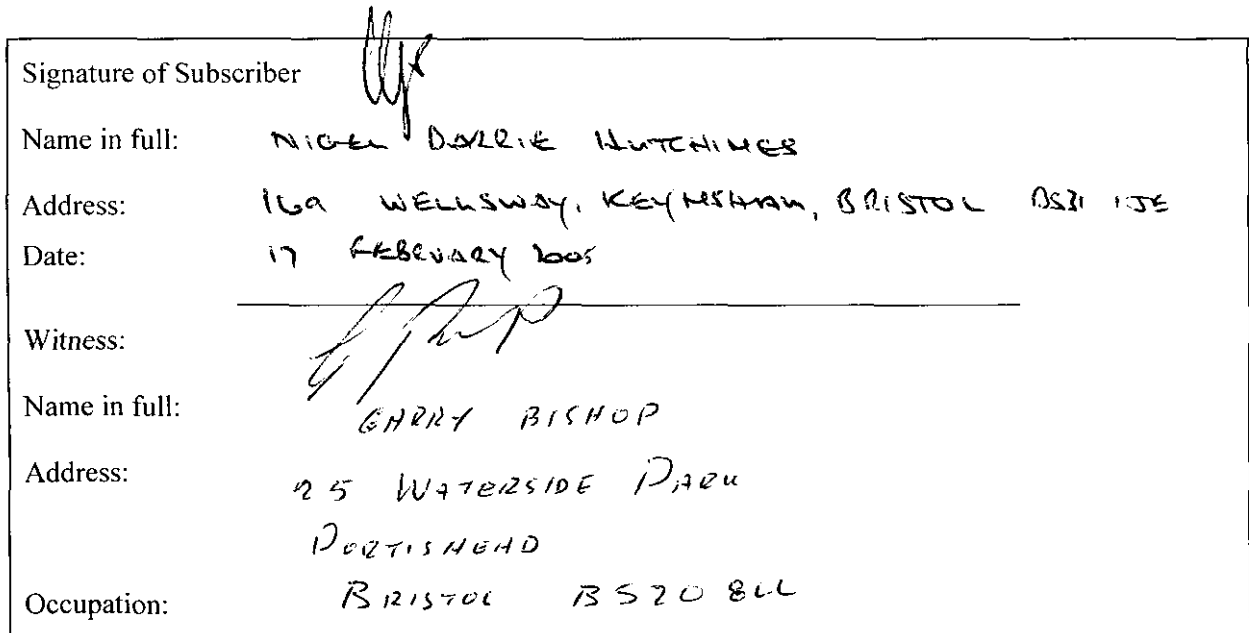 Signature of Subscriber
Name in full: NIGEL BARRIE HUTCHINGS
Address: 16a WELLSWAY, KEYNSHAM, BRISTOL BS31 1JE
Date: 17 FEBRUARY 2005
Witness:
Name in full: GARRY BISHOP
Address: 25 WATERSIDE PARK
PORTISHEAD
Occupation: BRISTOL BS20 8LL